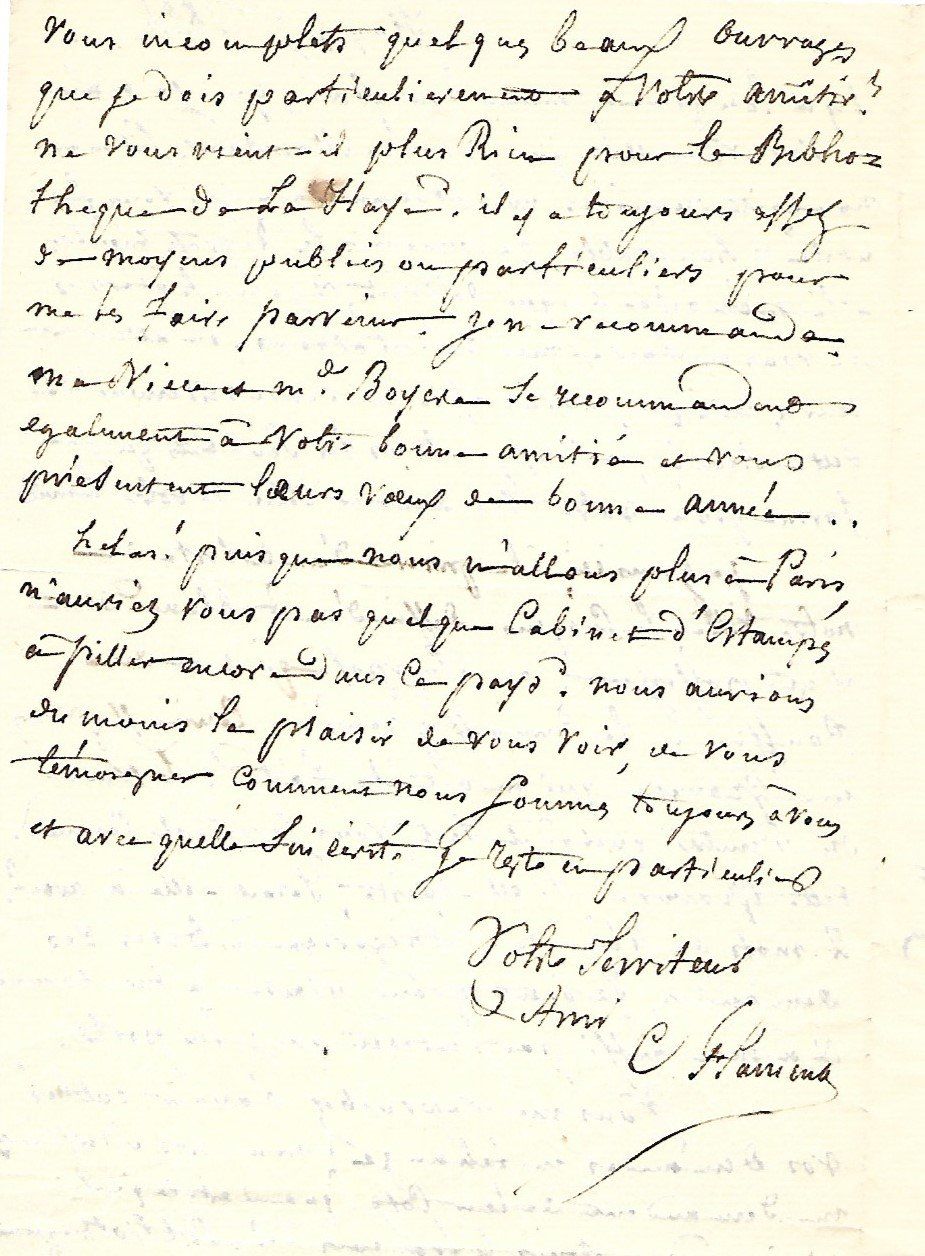 vous incomplets quelques beaux ouvrages
que je dois particulierement a Votre amitié?
ne vous vient-il plus Rien pour la Biblio=
theque de La Haye. il y a toujours assez
de moyens publics ou particuliers pour
me les faire parvenir. je me recommande.
ma Niece et md.e Boyer se recommandent
egalement à Votre bonne amitié et vous
présentent leurs vœux de bonne année..
helas! puisque nous n'allons plus à Paris,
n'auriez vous pas quelque Cabinet d'Estampes
à piller encore dans Ce pays. nous aurions
du moins le plaisir de vous voir, de vous
témoigner comment nous sommes toujours à vous
et avec quelle sincérité je reste en particulier
Votre Serviteur
& Ami
C Flament